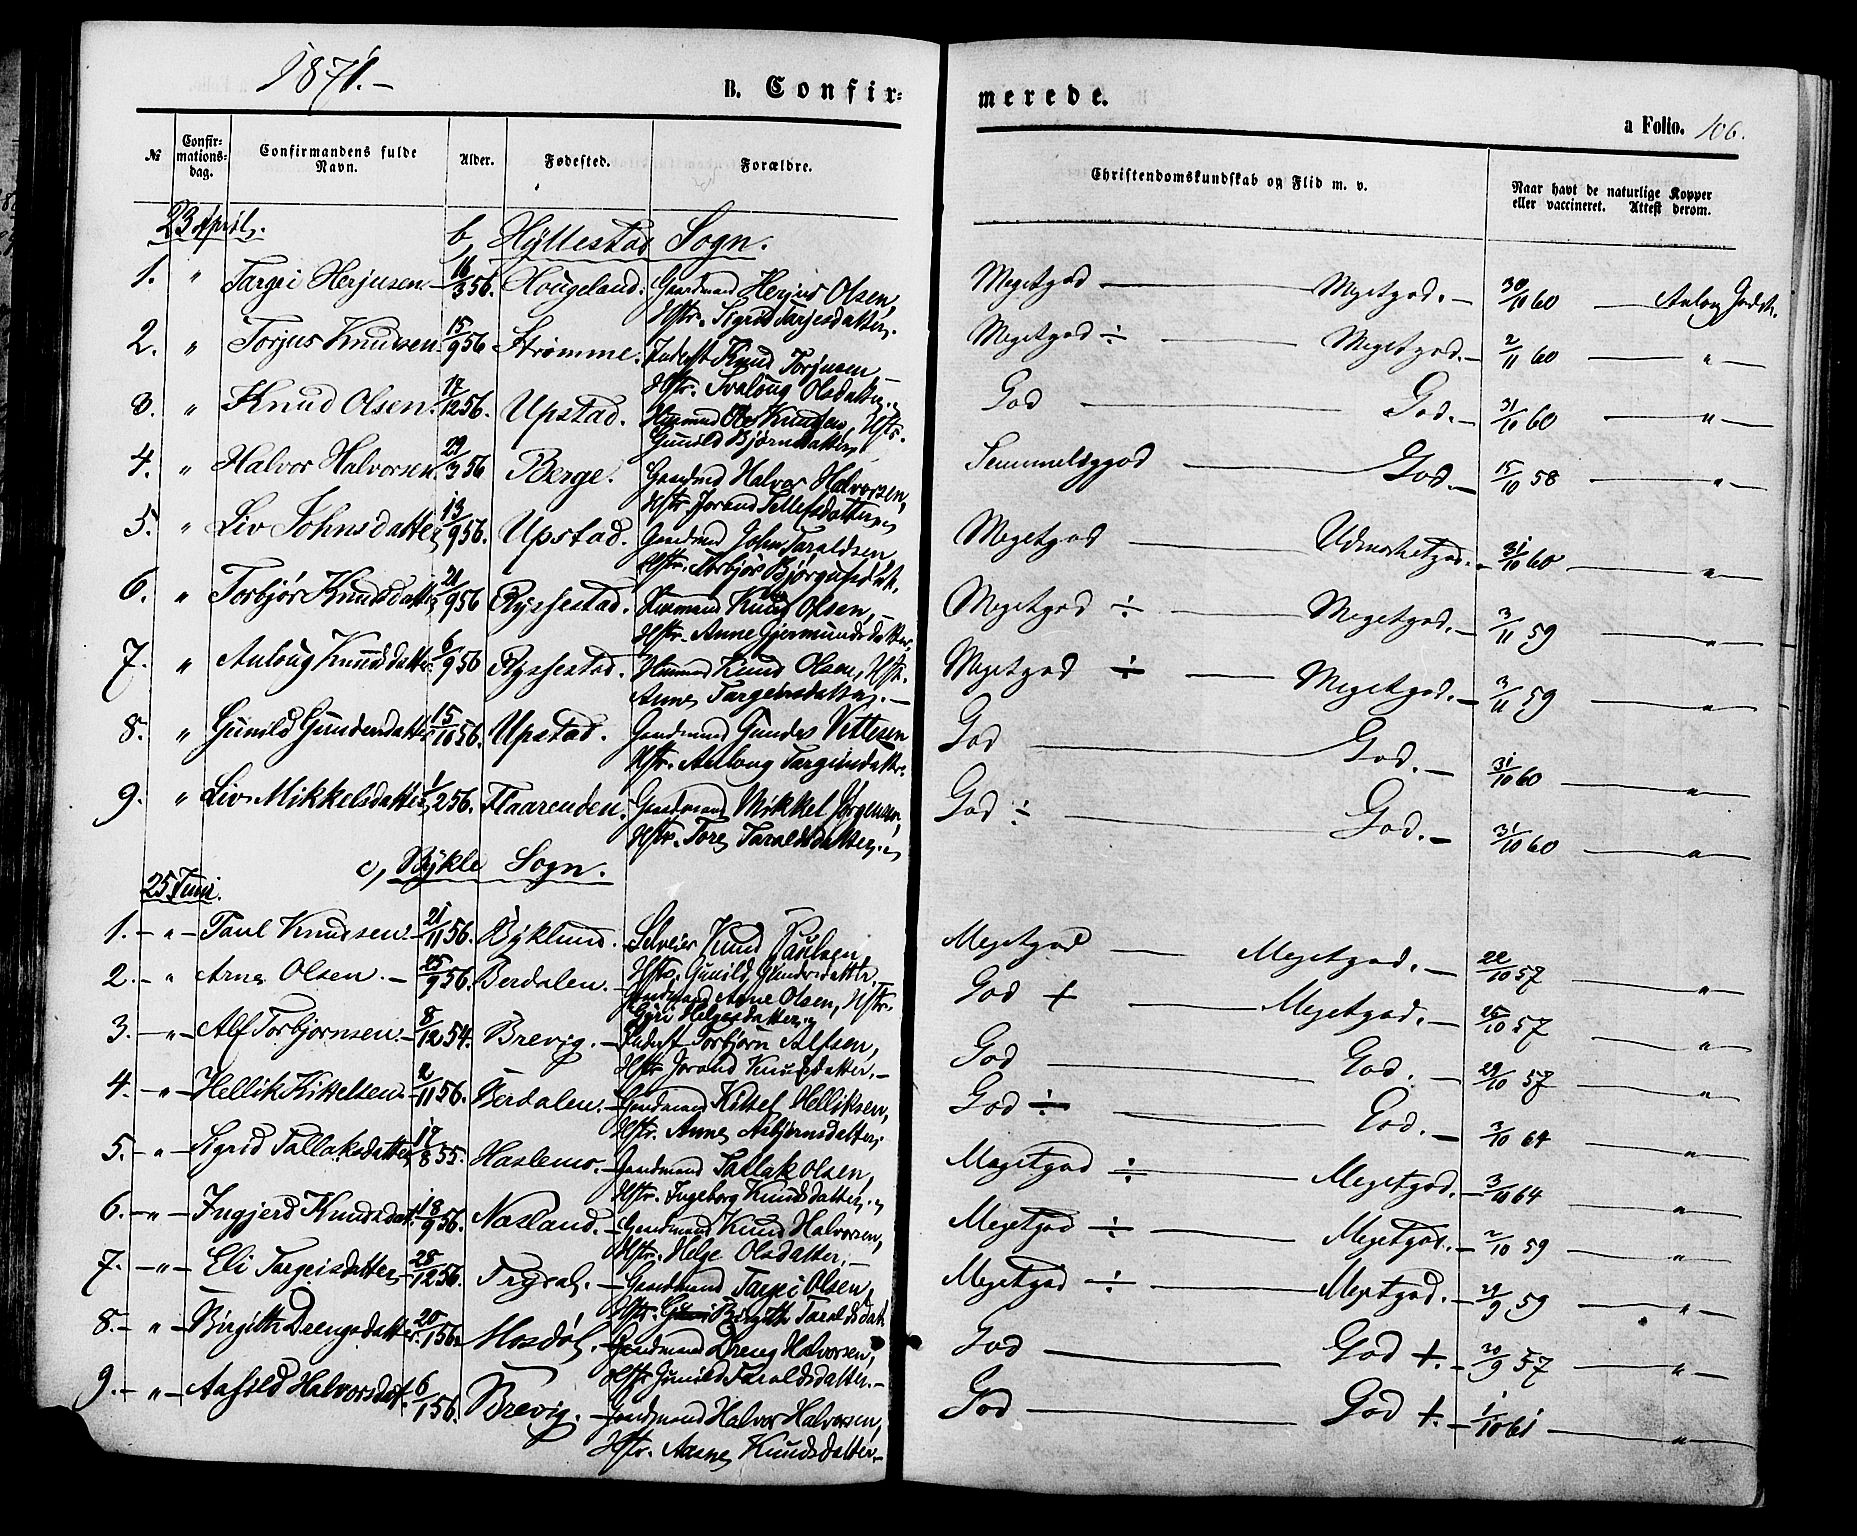 1871.-
B. Confirmerede.
a Folio. 106.
№ Confirmationsdag. Confirmandens fulde Navn. Alder. Fødested. Forældre. Christendomskundskab og Flid m. v. Naar havt de naturlige Kopper eller vaccineret. Attest derom.
23 April. b, Hyllestad Sogn.
1. " Targei Herjusen 16/3 56. Hougeland. Gaardmand Herjus Olsen, Meget god — Meget god. — 30/10 60 — Aulou
Hstr. Sigrid Tarjesdatter.
2. " Torjus Knudsen 15/9 56 Strømme. Inderst Knud Torjusen — Meget god ÷ — Meget god. — 2/11 60 — "
Hstr. Svaloug Olsdatter.
3. " Knud Olsen. 17/12 56. Upstad. Huusmand Ole Knudsen, Hstr. God — God. — 31/10 60 — "
Gunild Bjørnsdatter
4. " Halvor Halvorsen. 29/3 56 Berge. Gaardmd Halvor Halvorsen, Temmelig god — God. — 15/10 58 — "
Hstr. Jorand Tellefsdatter.
5. " Liv Johnsdatter 13/9 56. Upstad. Gaardmand John Taraldsen Meget god — Udmerket god. 31/10 60 — "
Hstr. Torbjør Bjørgufsdat.
6. " Torbjør Knudsdatter 21/9 56 Ryssestad. Huusmand Knud Olsen, Meget god ÷ — Meget god. — 3/11 59 — "
Hstr. Anne Gjermundsdatter
7. " Auloug Knudsdatter 6/9 56 Ryssestad. Huusmand Knud Olsen, Hstr. Meget god ÷ — Meget god. — 3/11 59 — "
Anne Targeirsdatter. —
8. " Gunild Gundersdatter 15/10 56. Upstad. Gaardmand Gunder Vettesen God — God. — 31/10 60 — "
Hstr. Auloug Targeirsdattr.
9. " Liv Mikkelsdatter 1/2 56. Flaarenden. Gaardmand Mikkel Jørgensen, God ÷ — God. — 31/10 60 — "
Hstr. Tore Taraldsdatter.
c, Bykle Sogn.
25 Juni.
1. — " — Paul Knudsen. 21/11 56. Byklum. Selveier Knud Paulsen, Meget god — Meget god. — 22/10 57 — "
Hstr. Gunild Gundersdatter
2. — " Arne Olsen. — 25/9 56. Berdalen. — Gaardmand Arne Olsen, Hstr. God + — Meget god. — 26/10 57 — "
Gyri Helgesdatter
3. — " — Alf Torbjørnsen. — 8/12 54. Brevig. — Inderst Torbjørn Alfsen, God — God. — 29/10 57 — "
Hstr. Jorand Knudsdatter. —
4. — " — Hellik Kittelsen. 2/11 56. Berdalen. — Gaardmand Kittel Helliksen, God ÷ — God. — 3/10 64 — "
Hstr. Anne Asbjørnsdatter.
5. — " — Sigrid Tallaksdatter 17/8 55. Haslemo. — Gaardmand Tallak Olsen, Meget god ÷ — Meget god. — 3/10 64 — "
Hstr. Ingeborg Knudsdatter.
6. — " — Ingjerd Knudsdat. 18/9 56. Nasland. — Gaardmand Knud Halvorsen, Meget god ÷ — Meget god. — 2/10 59 — "
Hstr. Helge Olsdatter. —
7. — " — Eli Targeisdatter 28/12 56. Trydal. — Gaardmand Targei Olsen, Meget god ÷ — Meget god. — 29/9 59 — " —
Hstr. Birgith Taraldsdat
8. — " — Birgith Drengsdatter 20/1 56. Mosdøl. — Gaardmand Dreng Halvorsen, God — God +. — 20/9 57 — " —
Hstr. Gunild Taraldsdatter. —
9. — " — Aasild Halvorsdat. 6/1 56. Brevig. — Gaardmand Halvor Halvorsen, God — God +. — 1/10 61 — " —
Hstr. Aasne Knudsdatter. —